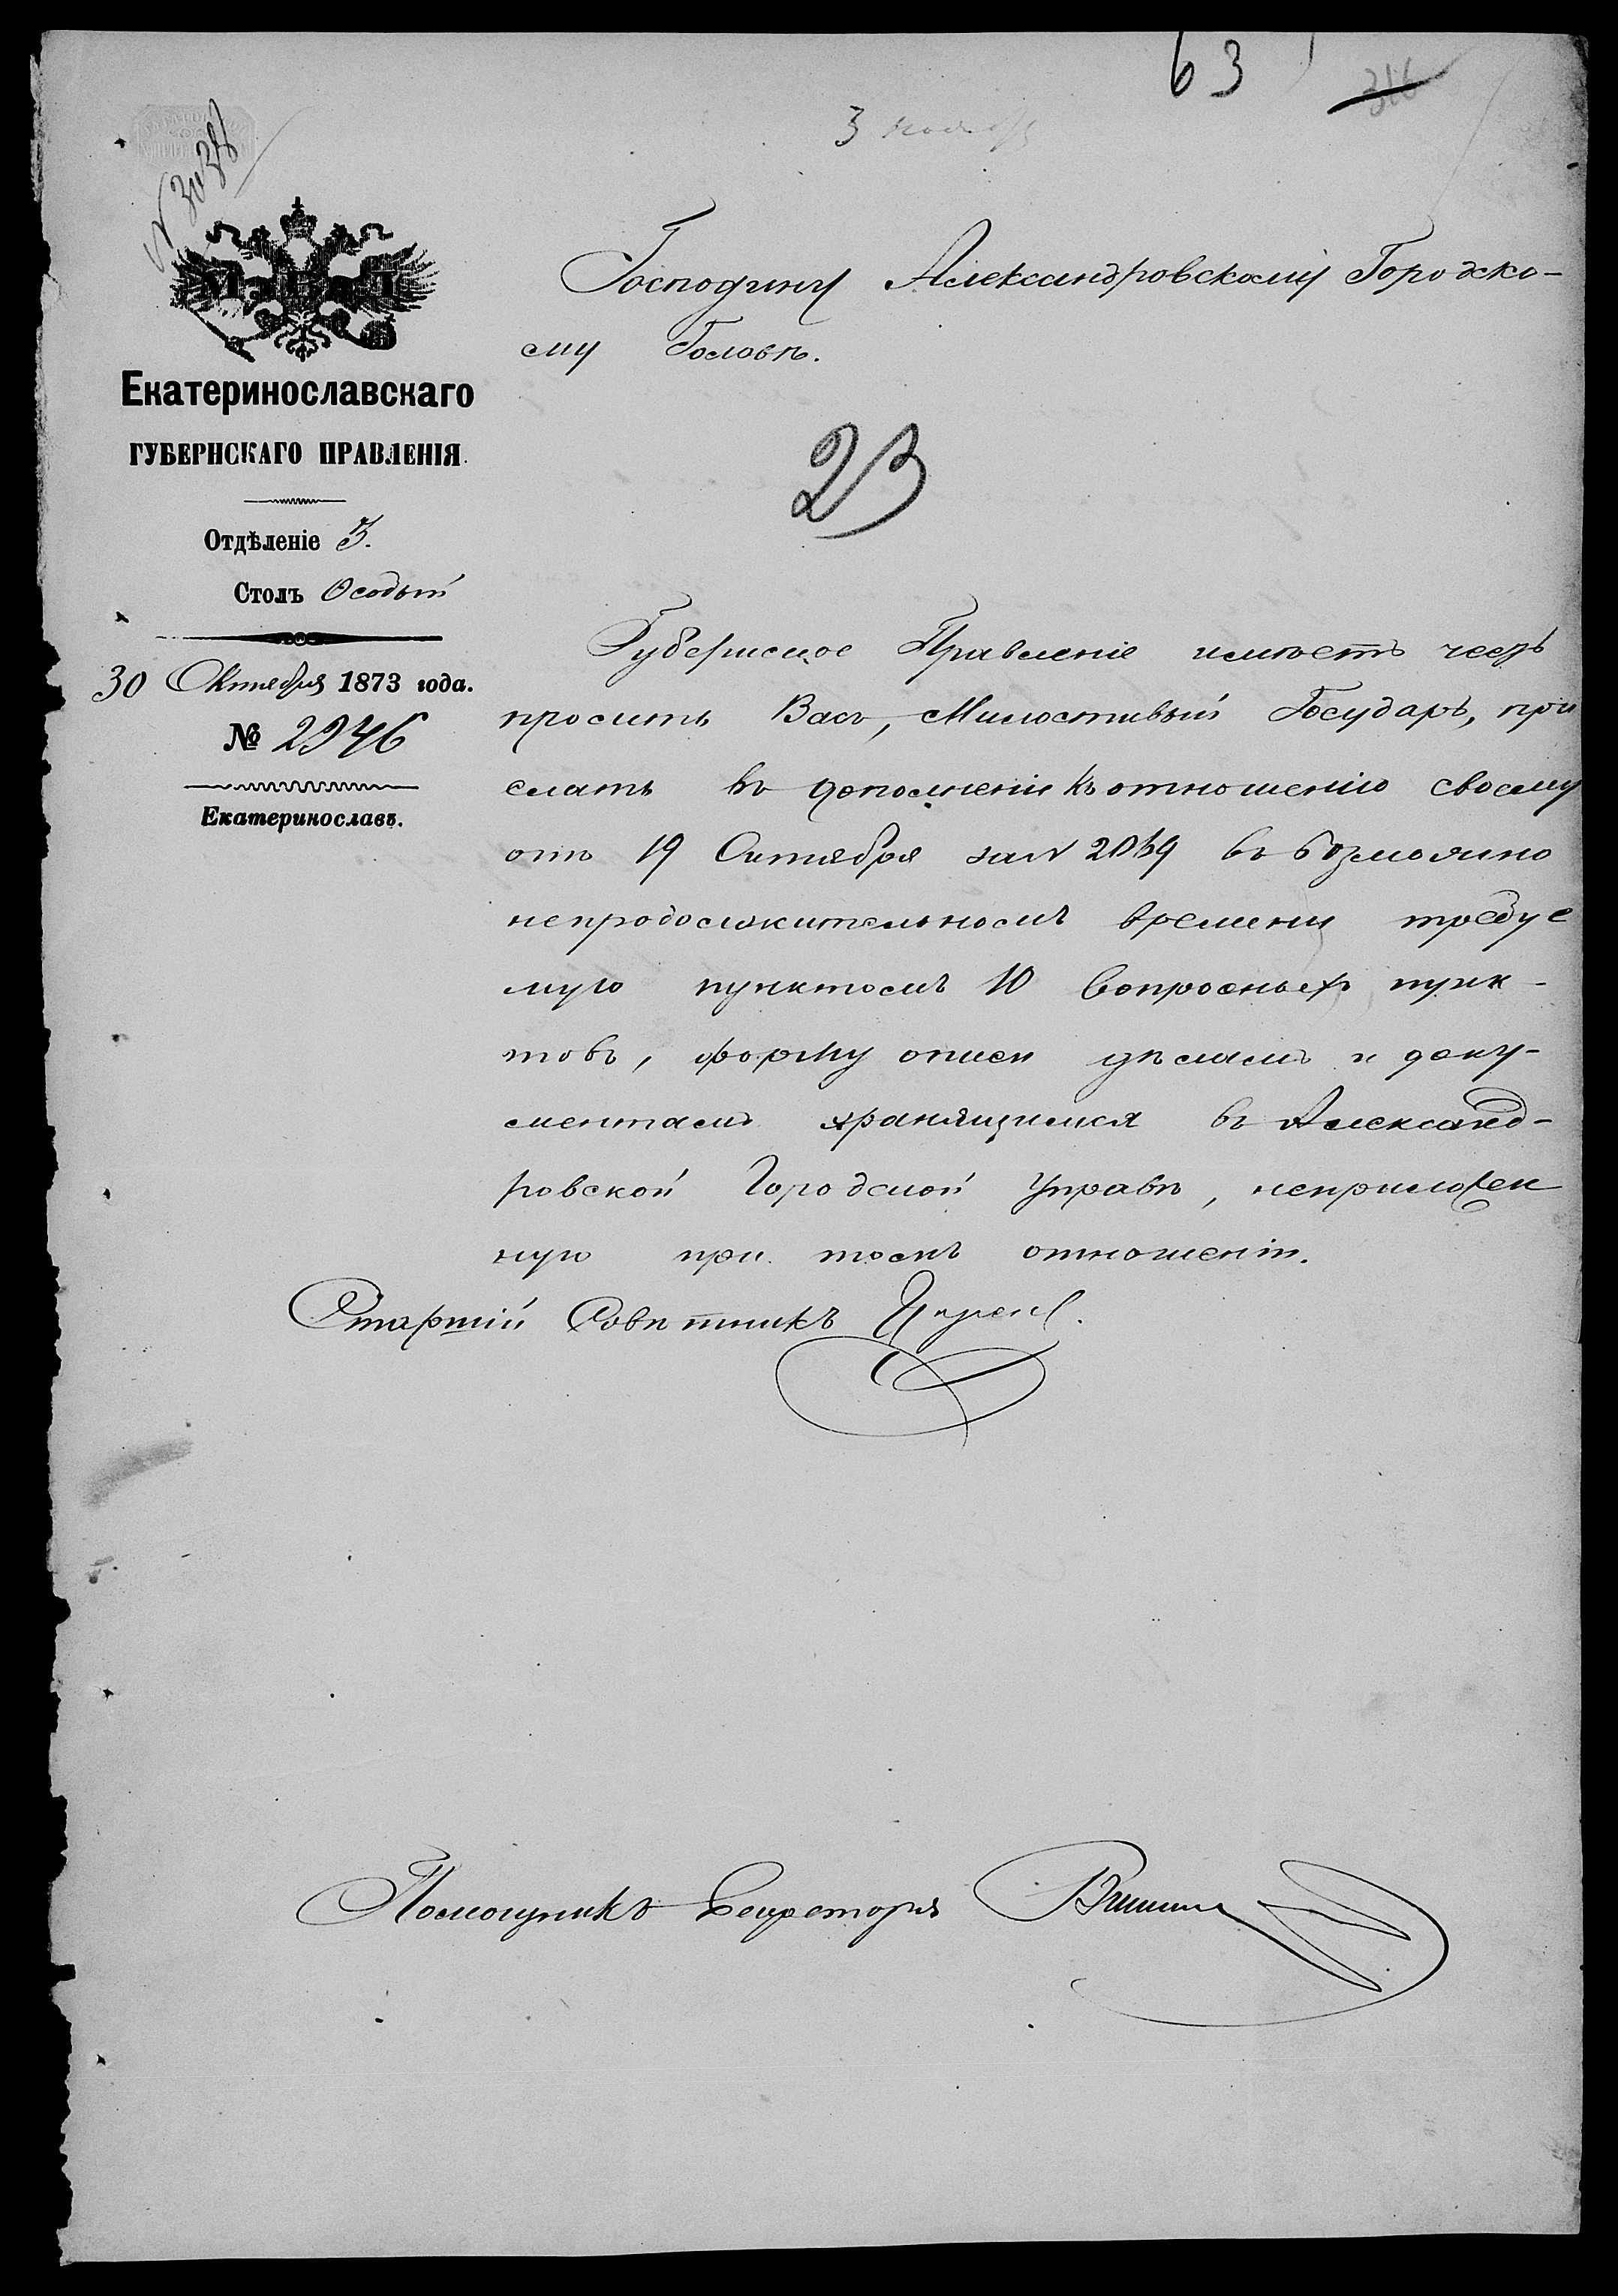 63
316
3 ноября
№ 3038
Екатеринославскаго
ГУБЕРНСКАГО ПРАВЛЕНІЯ.
Отдѣленіе 3.
Столъ Особый
30 Октября 1873 года.
№ 2946
Екатеринославъ.
Господину Александровскому Городско-
му Головѣ.
23
Губернское Правленіе имѣетъ честь
просить Васъ, Милостивый Государь, при
слать въ дополненіи къ отношенію своему
отъ 19 Октября за N 2039 въ возможно
непродолжительномъ времени требуе
мую пунктомъ 10 вопросныхъ пунк-
товъ, форму описи дѣламъ и доку-
ментамъ хранящимся въ Александ-
ровской Городской Управѣ, неприложен
ную при томъ отношеніи.
Старшій Совѣтникъ
Помощникъ Секретаря